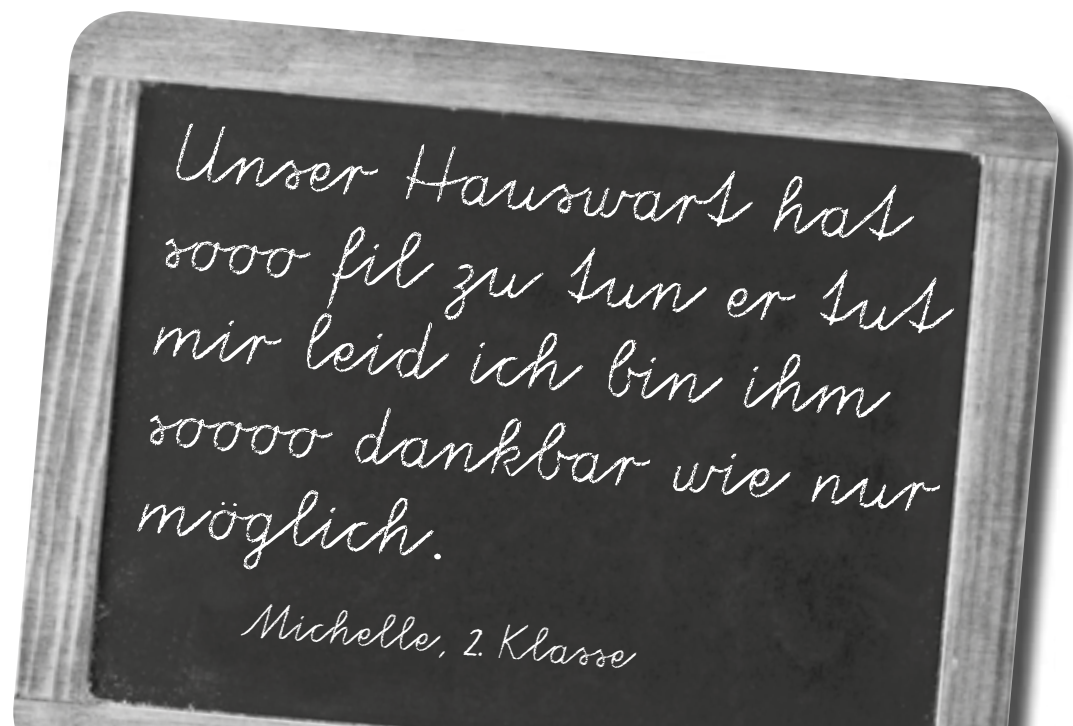 Unser Hauswart hat
sooo fil zu tun er tut
mir leid ich bin ihm
soooo dankbar wie nur
möglich.
Michelle, 2. Klasse